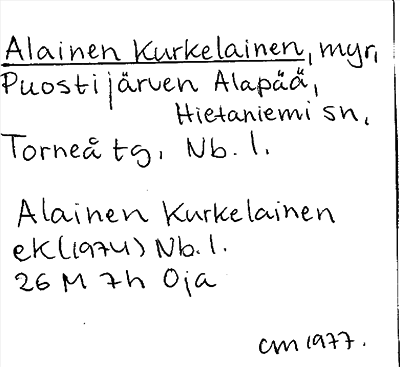 Alainen Kurkelainen, myr,
Puostijärven Alapää,
Hietaniemi sn,
Torneå tg. Nb. l.
Alainen Kurkelainen
ek (1974) Nb. l.
26 M 7h Oja
cm 1977.